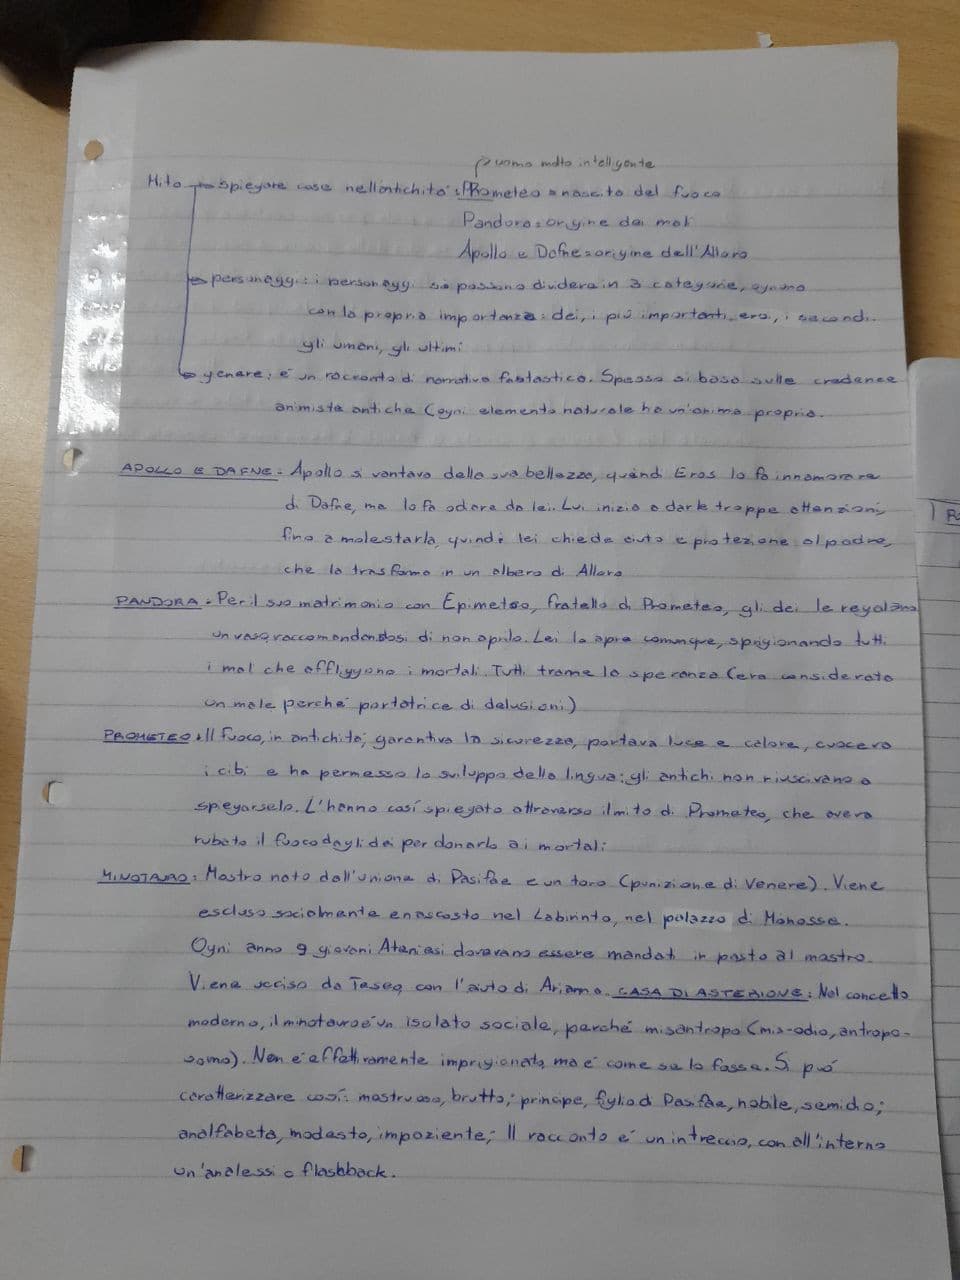 uomo molto intelligente
Mito → spiegare cose nell'antichità: PRometeo = nascita del fuoco
Pandora = origine dei mali
Apollo e Dafne = origine dell'Alloro
→ personaggi: i personaggi si possono dividere in 3 categorie, ognuna
con la propria importanza: dei, i più importanti, eroi, i secondi
gli umani, gli ultimi
→ genere: è un racconto di narrativa fantastica. Spesso si basa sulle credenze
animiste antiche (ogni elemento naturale ha un'anima propria.
APOLLO E DAFNE: Apollo si vantava della sua bellezza, quindi Eros lo fa innamorare
di Dafne, ma lo fa odiare da lei. Lui inizia a darle troppe attenzioni,
fino a molestarla, quindi lei chiede aiuto e protezione al padre,
che la trasforma in un albero di Alloro
PANDORA: Per il suo matrimonio con Epimeteo, fratello di Prometeo, gli dei le regalano
un vaso, raccomandandosi di non aprilo. Lei lo apre comunque, sprigionando tutti
i mali che affliggono i mortali. Tutti trame la speranza (era considerata
un male perché portatrice di delusioni.)
PROMETEO: Il fuoco, in antichità, garantiva la sicurezza, portava luce e calore, cuoceva
i cibi e ha permesso lo sviluppo della lingua; gli antichi non riuscivano a
spiegarselo. L'hanno così spiegato attraverso il mito di Prometeo, che aveva
rubato il fuoco dagli dei per donarlo ai mortali
MINOTAURO: Mostro nato dall'unione di Pasifae e un toro (punizione di Venere). Viene
escluso socialmente e nascosto nel Labirinto, nel palazzo di Minosse.
Ogni anno 9 giovani Ateniesi dovevano essere mandati in pasto al mostro.
Viene ucciso da Teseo, con l'aiuto di Arianna. CASA DI ASTERIONE: Nel concetto
moderno, il minotauro è un isolato sociale, perché misantropo (mis-odio, antropo-
uomo). Non è effettivamente imprigionato, ma è come se lo fosse. Si può
caratterizzare così: mostruoso, brutto; principe, figlio di Pasifae, nobile, semidio;
analfabeta, modesto, impaziente; Il racconto è un intreccio, con all'interno
un'analessi o flashback.